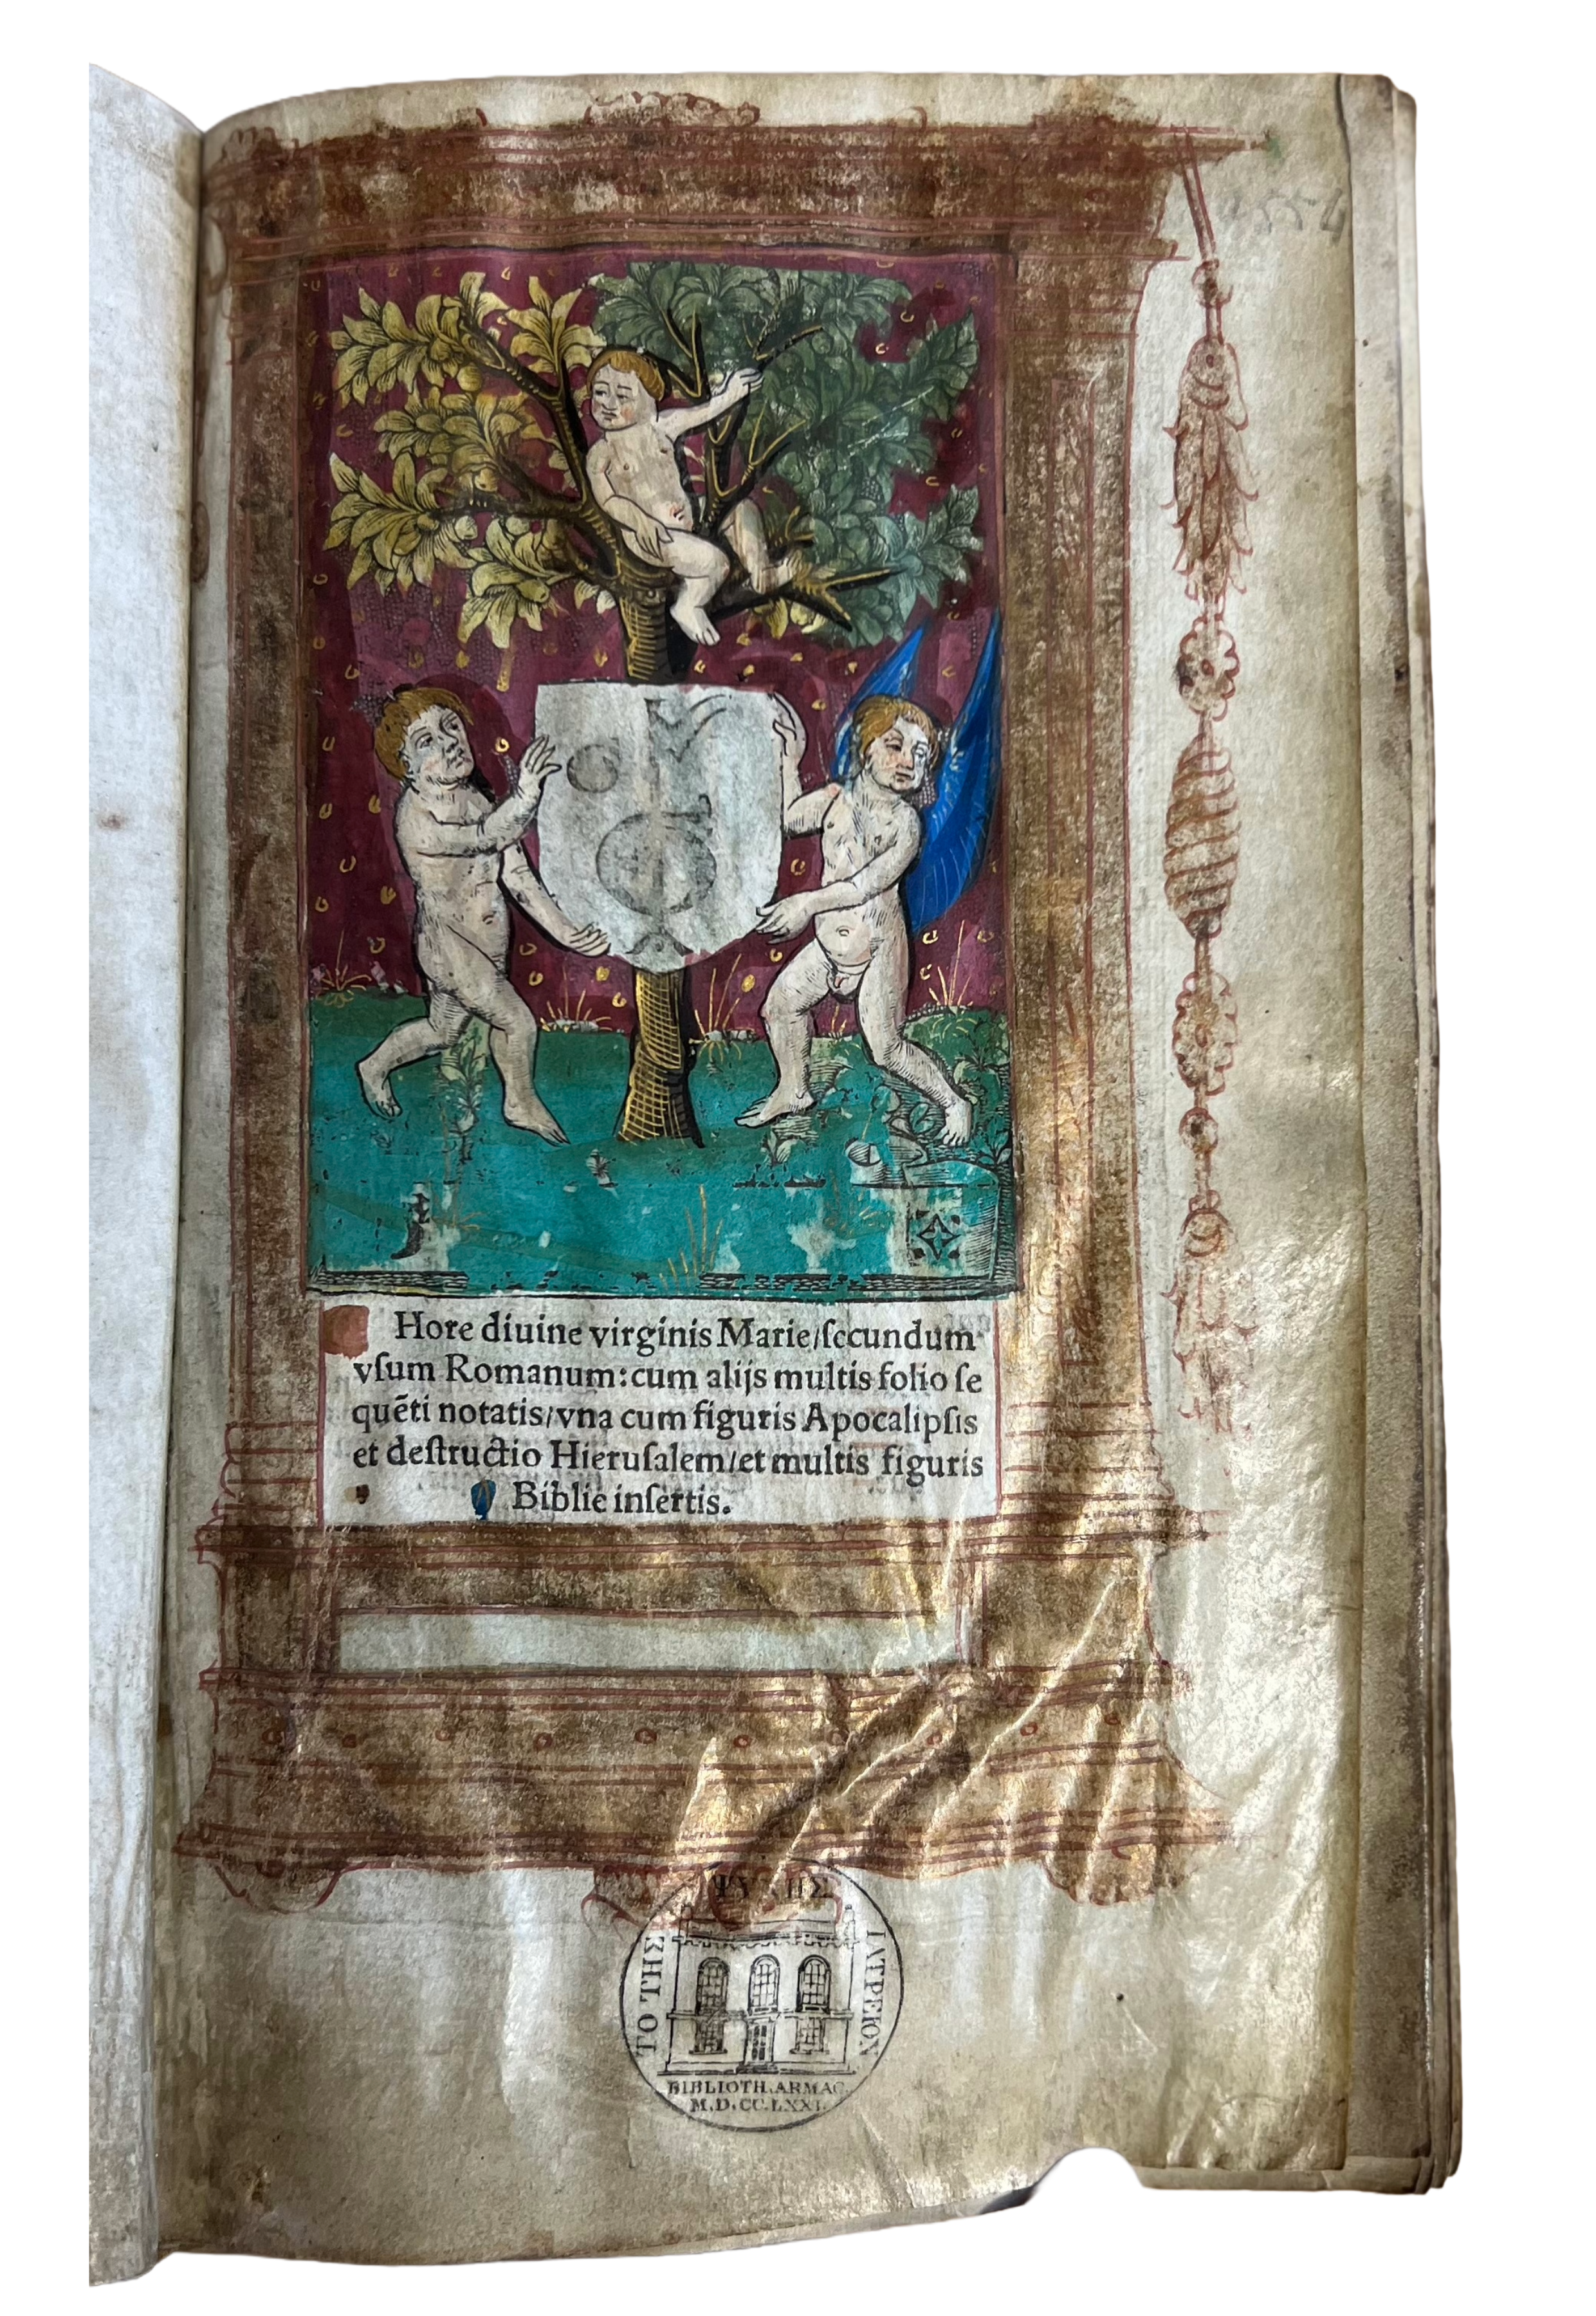 Hore diuine virginis Marie/secundum
vſum Romanum: cum alijs multis folio ſe
quēti notatis/vna cum figuris Apocalipſis
et deſtructio Hieruſalem/et multis figuris
Biblie inſertis.
ΨΥΧΗΣ
ΤΟ ΤΗΣ
ΙΑΤΡΕΙΟΝ
BIBLIOTH. ARMAC.
M.D.CC.LXXI.